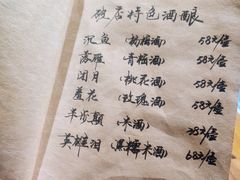 破店特色酒酿
沉鱼(杨梅酒) 58元/壶
落雁(青梅酒) 58元/壶
闭月(桃花酒) 58元/壶
羞花(玫瑰酒) 58元/壶
半步颠(米酒) 38元/壶
英雄泪(黑糯米酒) 68元/壶